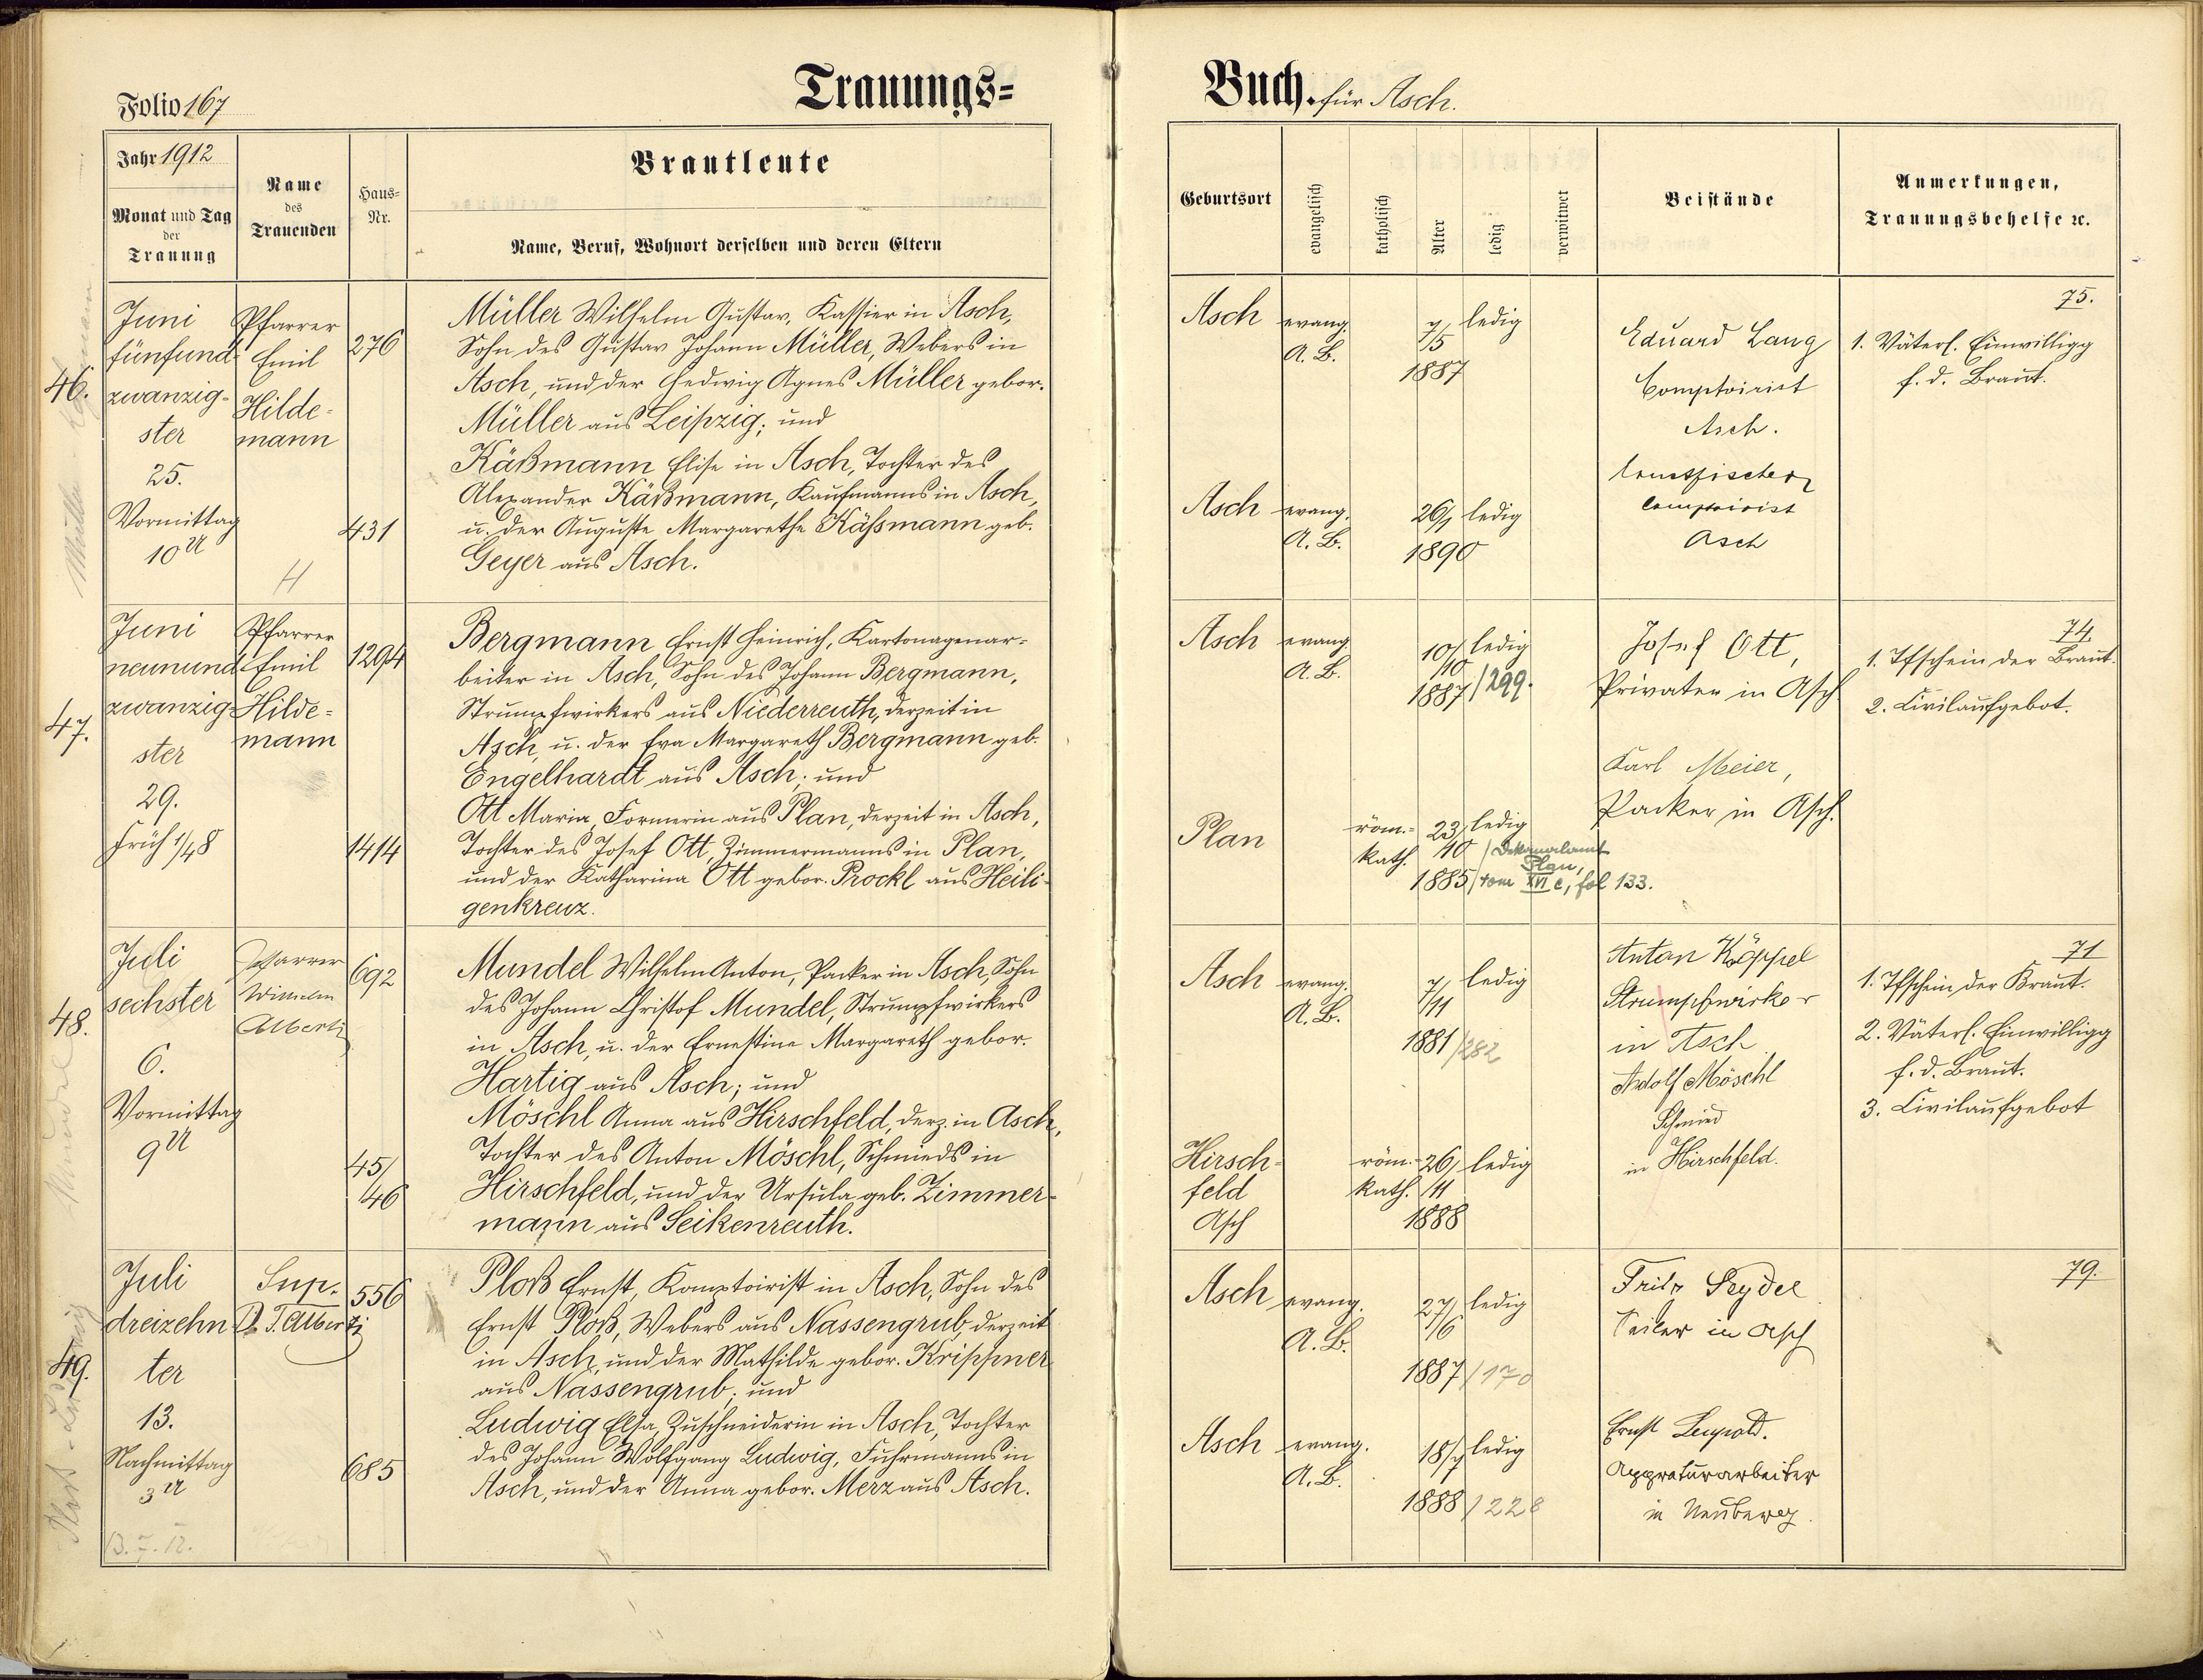 Folio 167
Trauungs=
Buch. für Asch.
Jahr 1912
Monat und Tag
der
Trauung
Name
des
Trauenden
Haus=
Nr.
Brautleute
Name, Beruf, Wohnort derselben und deren Eltern
Geburtsort
evangelisch
katholisch
Alter
ledig
verwitwet
Beistände
Anmerkungen,
Trauungsbehelfe ꝛc.
46.
Juni
fünfund-
zwanzig-
ster
25.
Vormittag
10 U
Pfarrer
Emil
Hilde-
mann
H
276
431
Müller Wilhelm Gustav, Kassier in Asch,
Sohn des Gustav Johann Müller, Webers in
Asch, und der Hedwig Agnes Müller gebor.
Müller aus Leipzig; und
Käßmann Elise in Asch, Tochter des
Alexander Käßmann, Kaufmanns in Asch,
u. der Auguste Margarethe Käßmann geb.
Geyer aus Asch.
Asch
evang.
A. B.
7/5
1887
ledig
Asch
evang.
A. B.
26/1
1890
ledig
Eduard Lang
Comptoirist
Asch.
Comptoirist
Asch
75.
1. Väterl. Einwilligg
f. d. Braut.
47.
Juni
neunund
zwanzig-
ster
29.
Früh 1/48
Pfarrer
Emil
Hilde=
mann
1294
1414
Bergmann Ernst Heinrich, Kartonagenar=
beiter in Asch, Sohn des Johann Bergmann,
Strumpfwirkers aus Niederreuth, derzeit in
Asch, u. der Eva Margareth Bergmann geb.
Engelhardt aus Asch; und
Ott Maria, Formerin aus Plan, derzeit in Asch,
Tochter des Josef Ott, Zimmermanns in Plan,
und der Katharina Ott gebor. Prockl aus Heili-
genkreuz.
Asch
evang.
A. B.
10/10
1887/299.
ledig
Plan
röm.-
kath.
23/10
1885
ledig
/Dekanalamt
Plan,
/tom XVI c, fol 133.
Josef Ott,
Privater in Asch
Karl Meier,
Packer in Asch.
74
1. Tfschein der Braut.
2. Civilaufgebot.
48.
Juli
sechster
6.
Vormittag
9 U
Pfarrer
Wilhelm
Alberti
692
45/
46
Mundel Wilhelm Anton, Packer in Asch, Sohn
des Johann Christof Mundel, Strumpfwirkers
in Asch, u. der Ernestine Margareth gebor.
Hartig aus Asch; und
Möschl Anna aus Hirschfeld, derz. in Asch,
Tochter des Anton Möschl, Schmieds in
Hirschfeld, und der Ursula geb. Zimmer-
mann aus Seikenreuth.
Asch
evang.
A. B.
7/11
1881/282
ledig
Hirsch-
feld
Asch
röm.-
kath.
26/11
1888
ledig
Anton Köppel
Strumpfwirker
in Asch
Adolf Möschl
Schmied
in Hirschfeld.
71
1. Tfschein der Braut.
2. Väterl. Einwilligg
f. d. Braut.
3. Civilaufgebot
49.
Juli
dreizehn
ter
13.
Nachmittag
3 U
13. 7. 12.
Sup.
D. T. Alberti
556
685
Ploß Ernst, Komptoirist in Asch, Sohn des
Ernst Ploß, Webers aus Nassengrub, derzeit
in Asch, und der Mathilde gebor. Krippner
aus Nassengrub; und
Ludwig Elsa, Zuschneiderin in Asch, Tochter
des Johann Wolfgang Ludwig, Fuhrmanns in
Asch, und der Anna gebor. Merz aus Asch.
Asch
evang.
A. B.
27/6
1887/170
ledig
Asch
evang.
A. B.
18/7
1888/228
ledig
Fritz Seydel
Seiler in Asch
Ernst Leupold.
Appraturarbeiter
in Neuberg.
79.